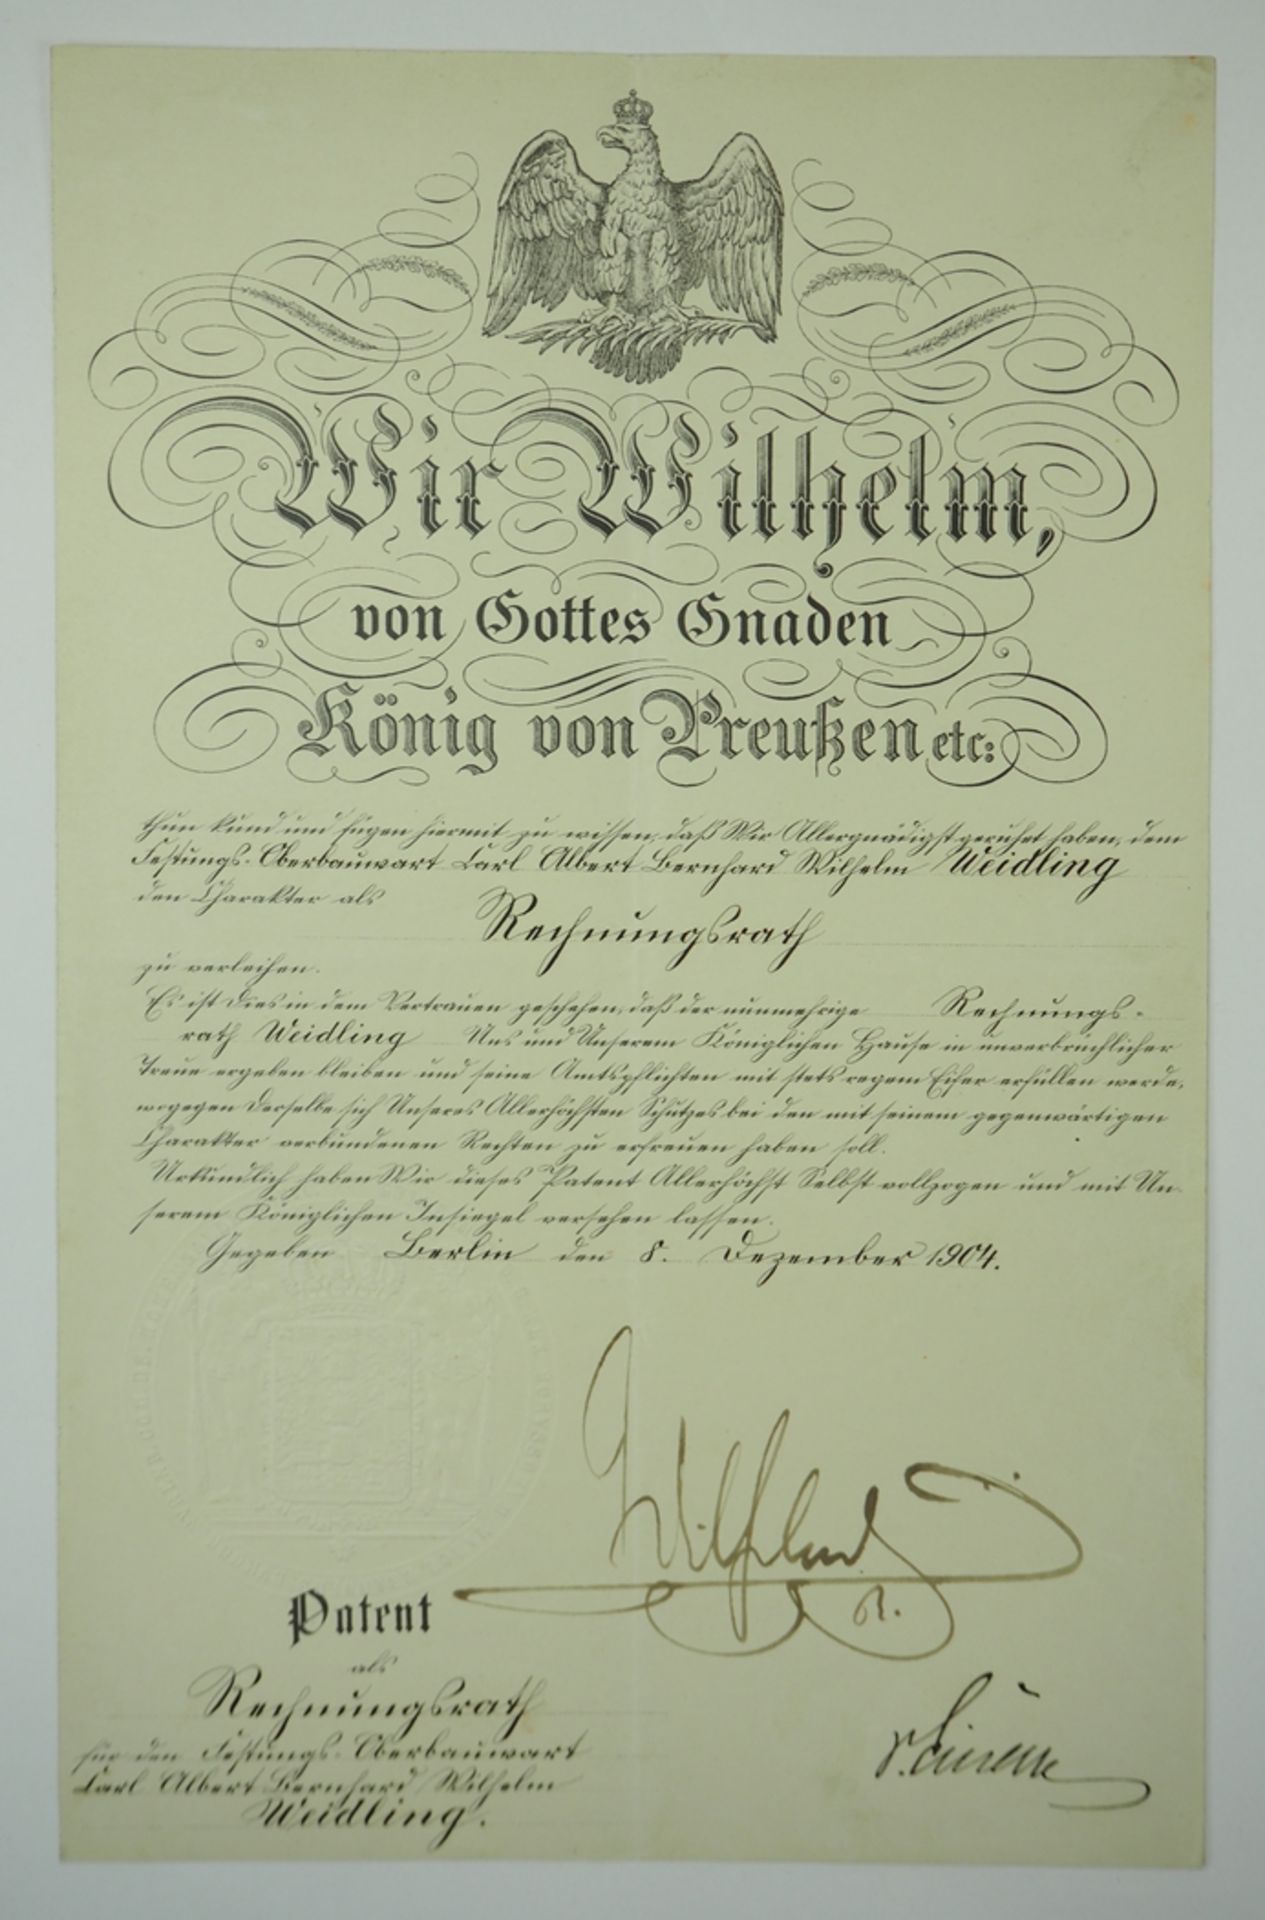 Wir Wilhelm,
von Gottes Gnaden
König von Preußen etc:
thun kund und fügen hiermit zu wissen, daß Wir Allergnädigst geruhet haben, dem
Festungs-Oberbauwart Carl Albert Bernhard Wilhelm Weidling
den Charakter als
Rechnungsrath
zu verleihen.
Es ist dies in dem Vertrauen geschehen, daß der nunmehrige Rechnungs-
rath Weidling Uns und Unserem Königlichen Hause in unverbrüchlicher
Treue ergeben bleiben und seine Amtspflichten mit stets regem Eifer erfüllen werde,
wogegen derselbe sich Unseres Allerhöchsten Schutzes bei den mit seinem gegenwärtigen
Charakter verbundenen Rechten zu erfreuen haben soll.
Urkundlich haben Wir dieses Patent Allerhöchst Selbst vollzogen und mit Un-
serem Königlichen Insiegel versehen lassen.
Gegeben Berlin den 8. Dezember 1904.
Wilhelm
R.
Patent
als
Rechnungsrath
für den Festungs-Oberbauwart
Carl Albert Bernhard Wilhelm
Weidling.
v. Einem